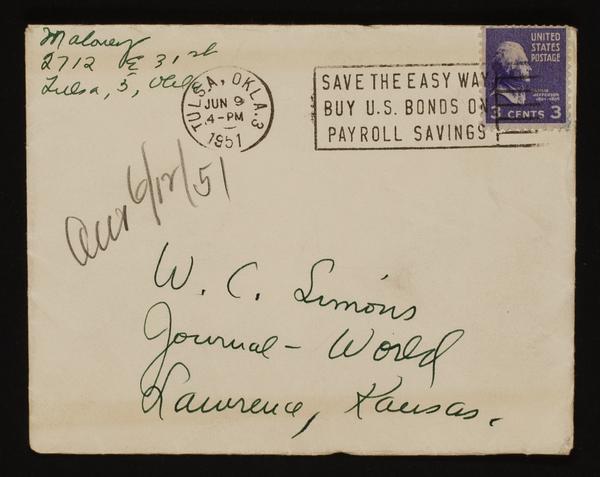 Maloney
2712 E 31st
Tulsa, 5, Okla
TULSA, OKLA. 3
JUN 9
4-PM
1951
SAVE THE EASY WAY
BUY U.S. BONDS ON
PAYROLL SAVINGS
UNITED
STATES
POSTAGE
3 CENTS 3
6/12/51
W. C. Simons
Journal - World
Lawrence, Kansas.